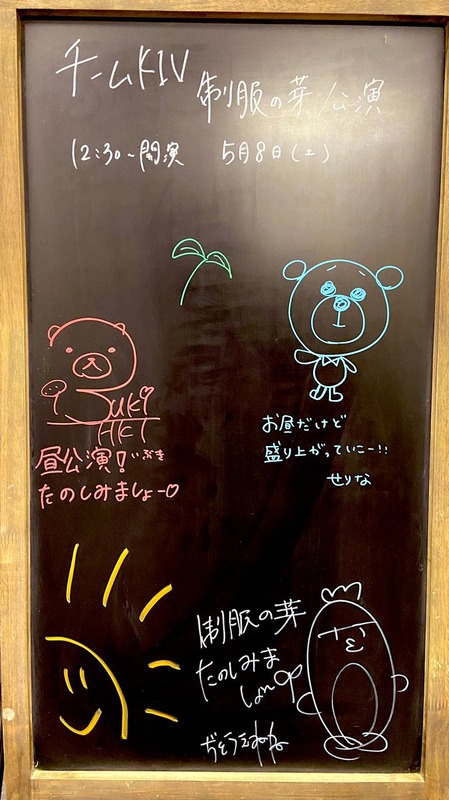 チームKIV
制服の芽公演
12:30~開演 5月8日(土)
昼公演! いぶき
たのしみましょー
お昼だけど
盛り上がっていこー!!
せりな
制服の芽
たのしみま
しょー